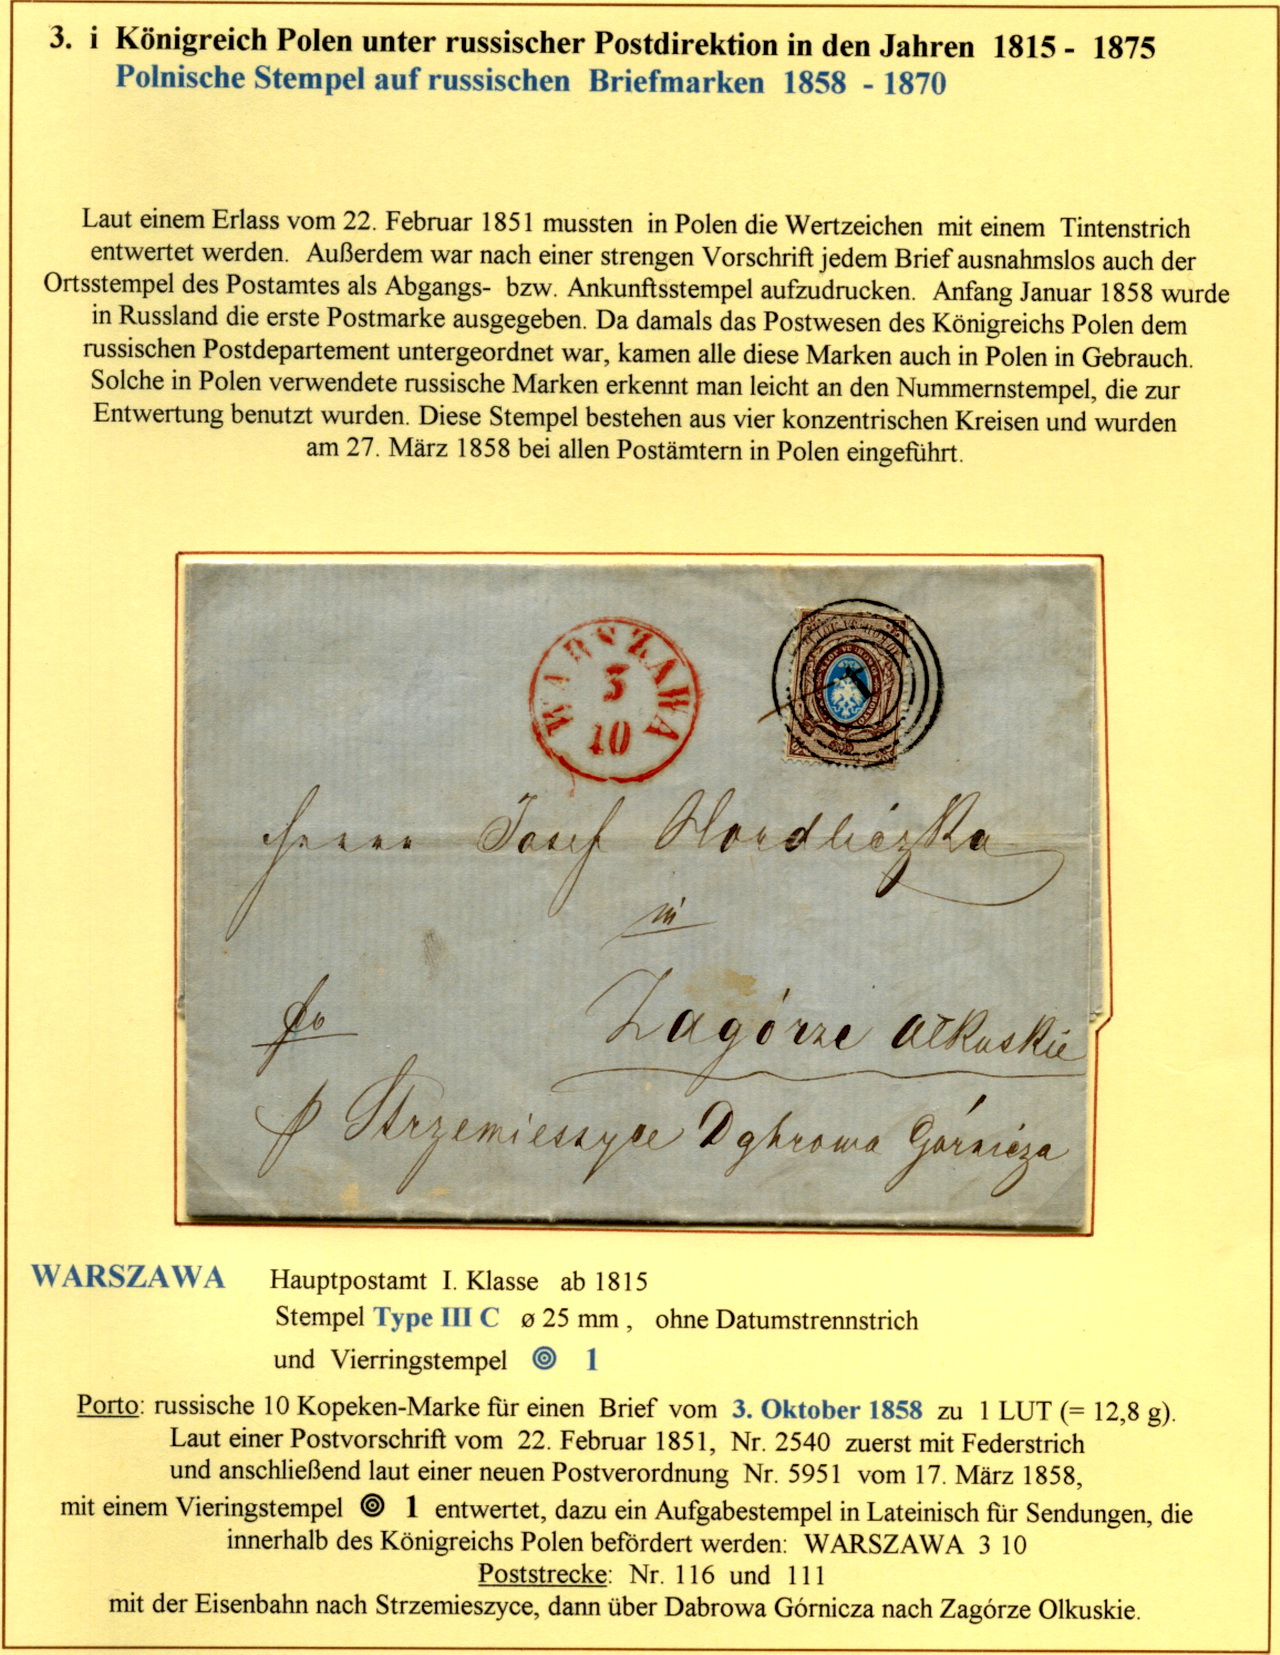 3. i Königreich Polen unter russischer Postdirektion in den Jahren 1815 - 1875
Polnische Stempel auf russischen Briefmarken 1858 - 1870
Laut einem Erlass vom 22. Februar 1851 mussten in Polen die Wertzeichen mit einem Tintenstrich
entwertet werden. Außerdem war nach einer strengen Vorschrift jedem Brief ausnahmslos auch der
Ortsstempel des Postamtes als Abgangs- bzw. Ankunftsstempel aufzudrucken. Anfang Januar 1858 wurde
in Russland die erste Postmarke ausgegeben. Da damals das Postwesen des Königreichs Polen dem
russischen Postdepartement untergeordnet war, kamen alle diese Marken auch in Polen in Gebrauch.
Solche in Polen verwendete russische Marken erkennt man leicht an den Nummernstempel, die zur
Entwertung benutzt wurden. Diese Stempel bestehen aus vier konzentrischen Kreisen und wurden
am 27. März 1858 bei allen Postämtern in Polen eingeführt.
WARSZAWA
3
10
1
Herrn Josef Nordliczka
in
Zagórze Olkuskie
p Strzemieszyce Dąbrowa Górnicza
WARSZAWA Hauptpostamt I. Klasse ab 1815
Stempel Type III C ø 25 mm , ohne Datumstrennstrich
und Vierringstempel 1
Porto: russische 10 Kopeken-Marke für einen Brief vom 3. Oktober 1858 zu 1 LUT (= 12,8 g).
Laut einer Postvorschrift vom 22. Februar 1851, Nr. 2540 zuerst mit Federstrich
und anschließend laut einer neuen Postverordnung Nr. 5951 vom 17. März 1858,
mit einem Vieringstempel 1 entwertet, dazu ein Aufgabestempel in Lateinisch für Sendungen, die
innerhalb des Königreichs Polen befördert werden: WARSZAWA 3 10
Poststrecke: Nr. 116 und 111
mit der Eisenbahn nach Strzemieszyce, dann über Dabrowa Górnicza nach Zagórze Olkuskie.